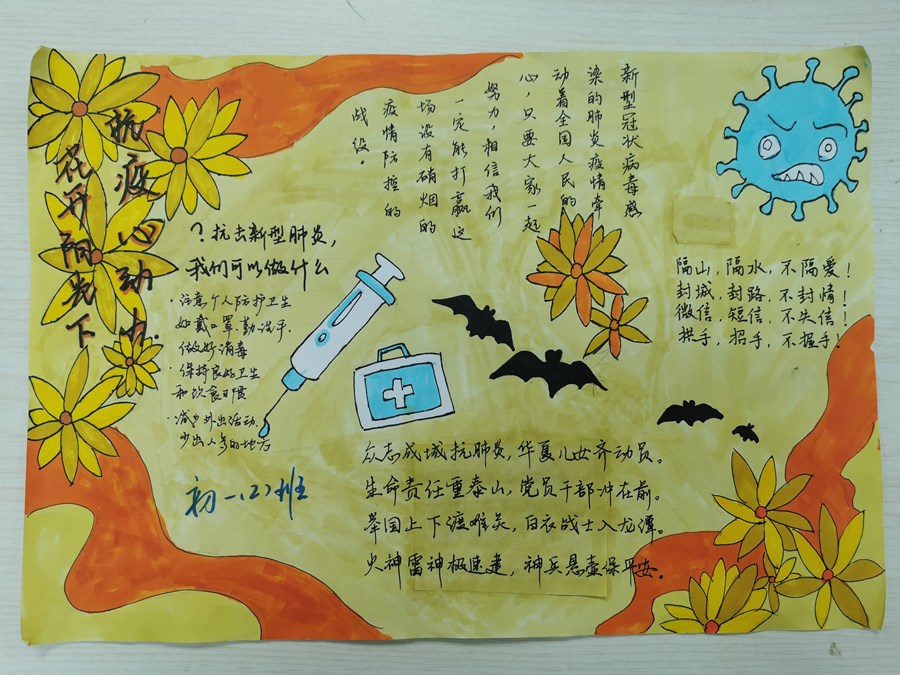 抗疫心动中.
花开阳光下
新型冠状病毒感
染的肺炎疫情牵
动着全国人民的
心,只要大家一起
努力,相信我们
一定能打赢这
场没有硝烟的
疫情防控的
战役。
?抗击新型肺炎,
我们可以做什么
·注意个人防护卫生
如戴口罩,勤洗手.
做好消毒
·保持良好卫生
和饮食习惯
·减少外出活动.
少出人多的地方
初一(2)班
隔山,隔水,不隔爱!
封城,封路,不封情!
微信,短信,不失信!
拱手,招手,不握手!
众志成城抗肺炎,华夏儿女齐动员。
生命责任重泰山,党员干部冲在前。
举国上下渡难关,白衣战士入龙潭。
火神雷神极速建,神兵悬壶保平安.